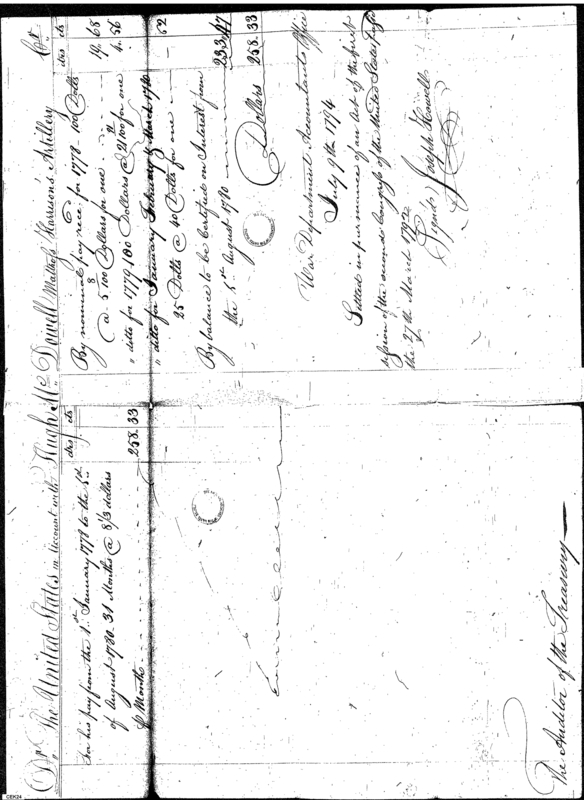 Dr. The United States in Account with Hugh McDowell Matross Harrison's Artillery Cr.
dlrs cts
For his pay from the 1st January 1778 to the 5th
of August 1780. 31 Months @ 8 1/3 dollars
⅌ Month 258.33
dlrs cts
By nominal pay rece. for 1778 100 Dolls
@ 5 8/100 Dollars for one 19.68
" ditto for 1779 100 Dollars @ 21/100 for one 4.56
" ditto for January February & March 1780
25 Dolls @ 40 Dolls for one - 62
By balance to be Certified on Interest from
the 5th August 1780 233.47
Dollars 258.33
War Department Accountants Office
July 9th 1794
Settled in pursuance of an Act of the first
session of the second Congress of the United States Passed
the 27th March 1792
Signed Joseph Howell
The Auditor of the Treasury
CEK24